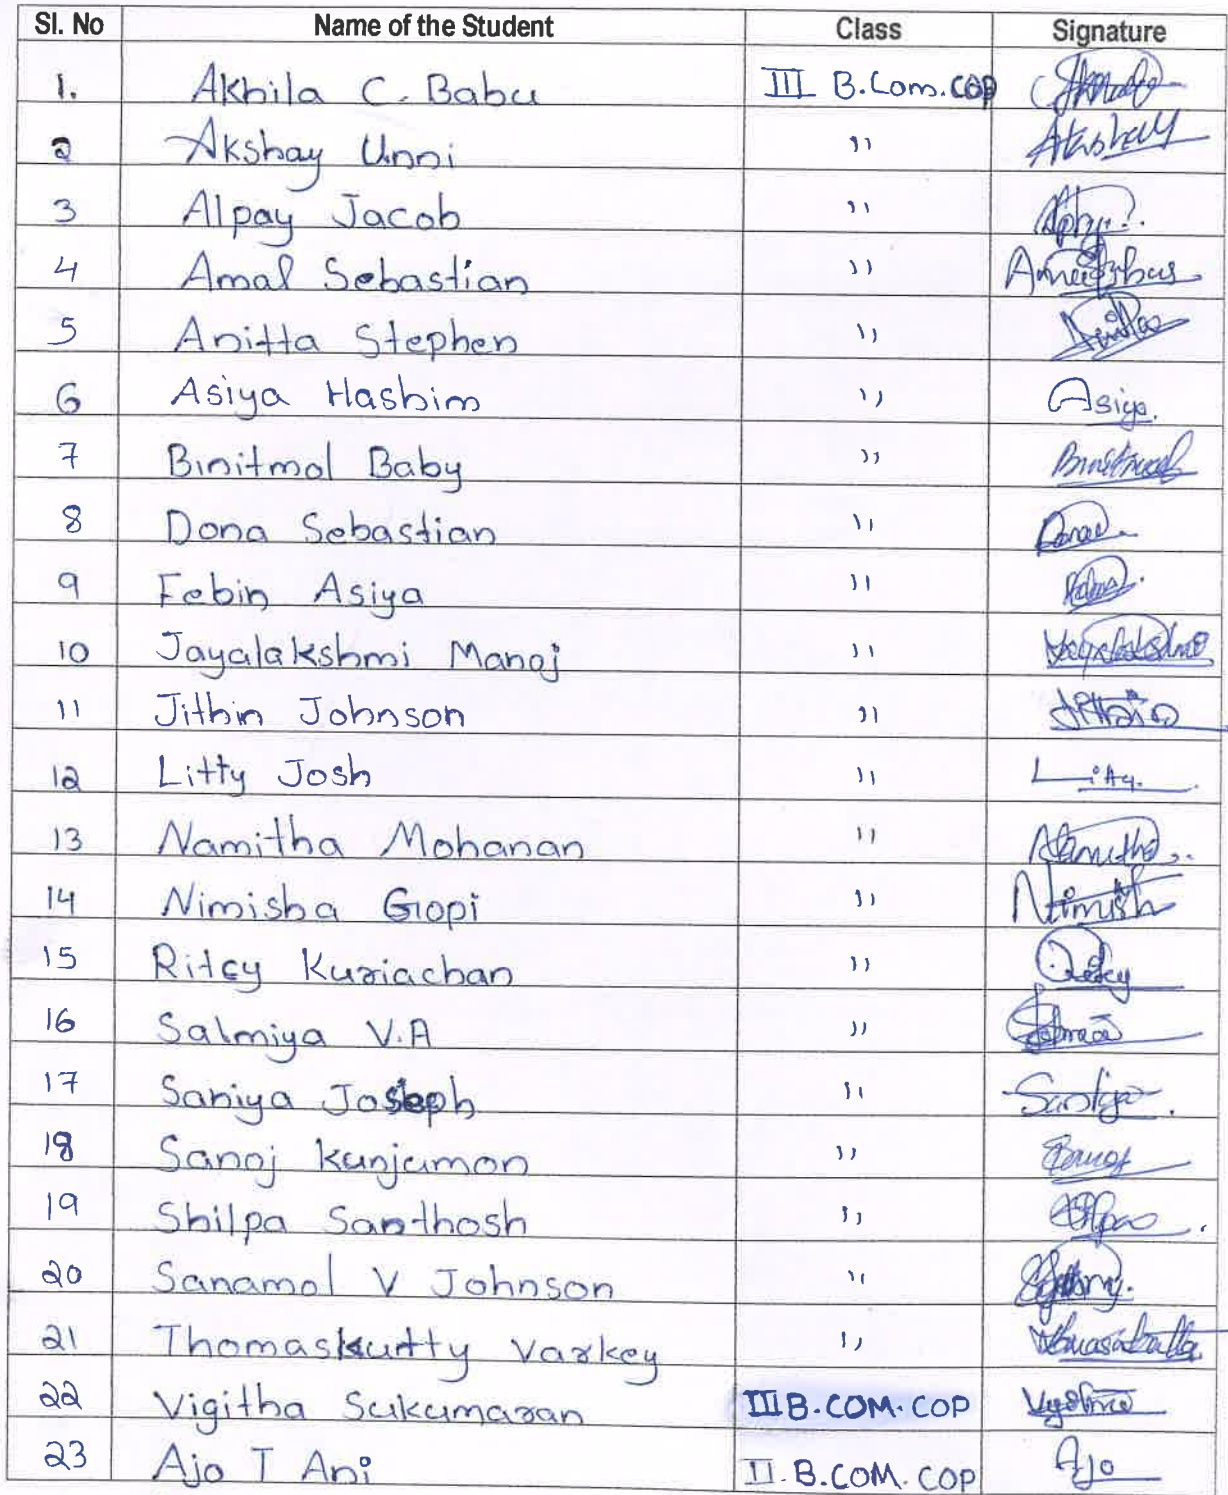 Sl. No Name of the Student Class Signature
1. Akhila C. Babu III B.Com. COP
2 Akshay Unni " Akshay
3 Alpay Jacob "
4 Amal Sebastian "
5 Anitta Stephen " Anitta
6 Asiya Hashim " Asiya.
7 Binitmol Baby "
8 Dona Sebastian " Dona
9 Febin Asiya "
10 Jayalakshmi Manoj " Jayalakshmi
11 Jithin Johnson " Jithin
12 Litty Josh " Litty.
13 Namitha Mohanan " Namitha
14 Nimisha Gopi " Nimish
15 Ritcy Kuriachan " Ritcy
16 Salmiya V.A "
17 Saniya Joseph " Saniya
18 Sanoj Kunjumon " Sanoj
19 Shilpa Santhosh "
20 Sanamol V Johnson "
21 Thomaskutty Varkey "
22 Vigitha Sukumaran III B.COM. COP
23 Ajo T Ani II. B.COM. COP Ajo